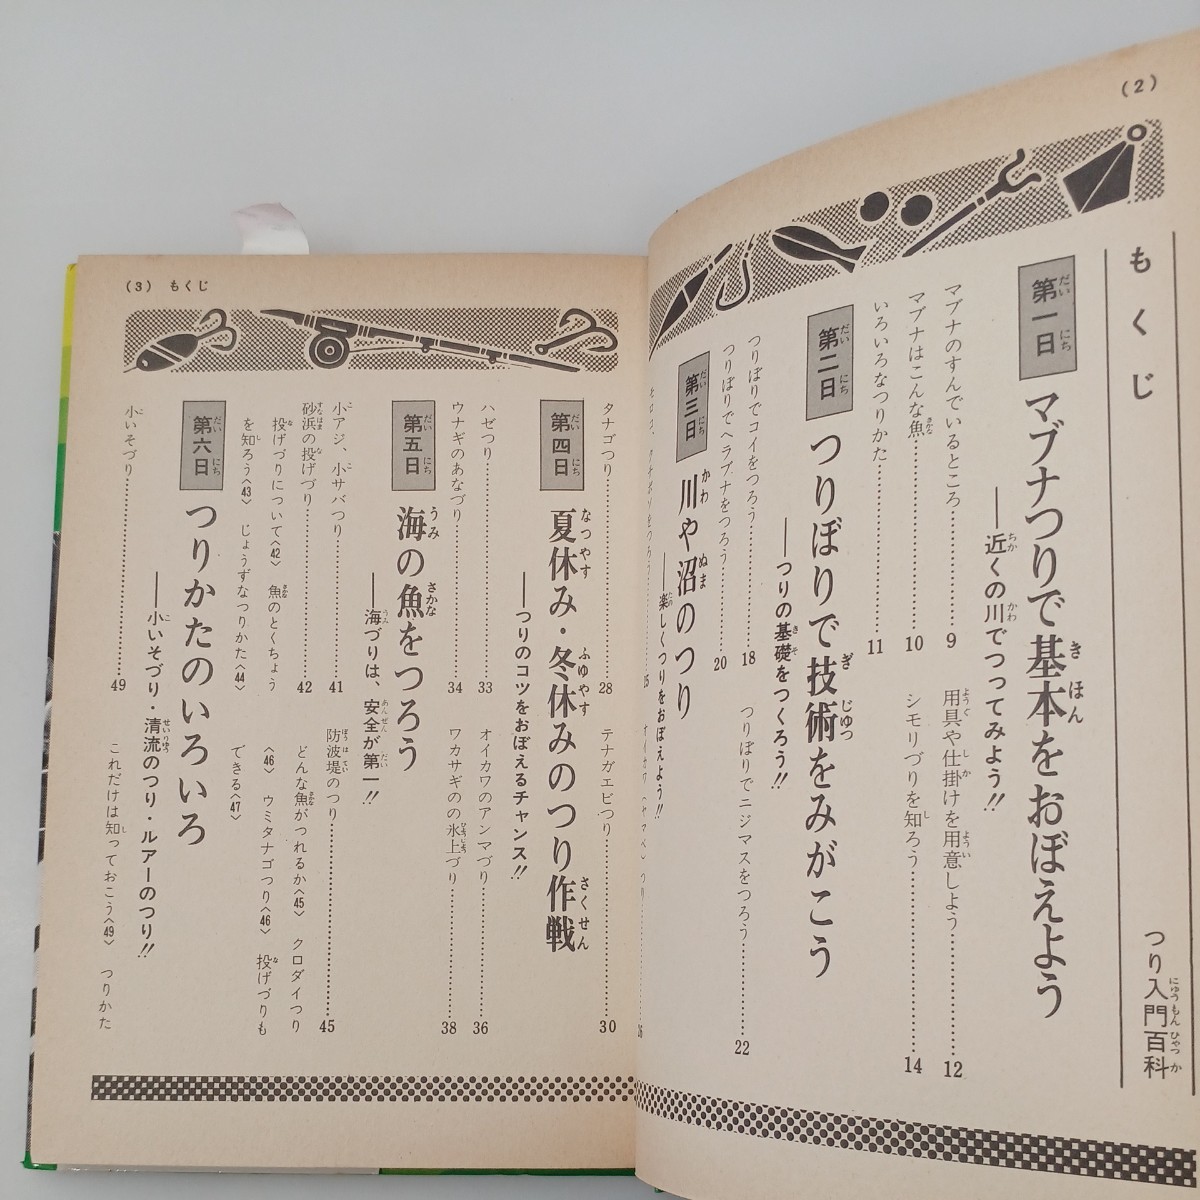 (2)
もくじ
つり入門百科
第一日
マブナつりで基本をおぼえよう
——近くの川でつってみよう!!
マブナのすんでいるところ……9
用具や仕掛けを用意しよう……12
マブナはこんな魚……10
シモリづりを知ろう……14
いろいろなつりかた……11
第二日
つりぼりで技術をみがこう
——つりの基礎をつくろう!!
つりぼりでコイをつろう……18
つりぼりでニジマスをつろう……22
つりぼりでヘラブナをつろう……20
第三日
川や沼のつり
——楽しくつりをおぼえよう!!
(3) もくじ
タナゴつり……28
テナガエビつり……30
第四日
夏休み・冬休みのつり作戦
——つりのコツをおぼえるチャンス!!
ハゼつり……33
オイカワのアンマづり……36
ウナギのあなづり……34
ワカサギのの氷上づり……38
第五日
海の魚をつろう
——海づりは、安全が第一!!
小アジ、小サバつり……41
防波堤のつり……45
砂浜の投げづり……42
どんな魚がつれるか〈45〉 クロダイつり
投げづりについて〈42〉 魚のとくちょう
〈46〉 ウミタナゴつり〈46〉 投げづりも
を知ろう〈43〉 じょうずなつりかた〈44〉
できる〈47〉
第六日
つりかたのいろいろ
——小いそづり・清流のつり・ルアーのつり!!
小いそづり……49
これだけは知っておこう〈49〉 つりかた